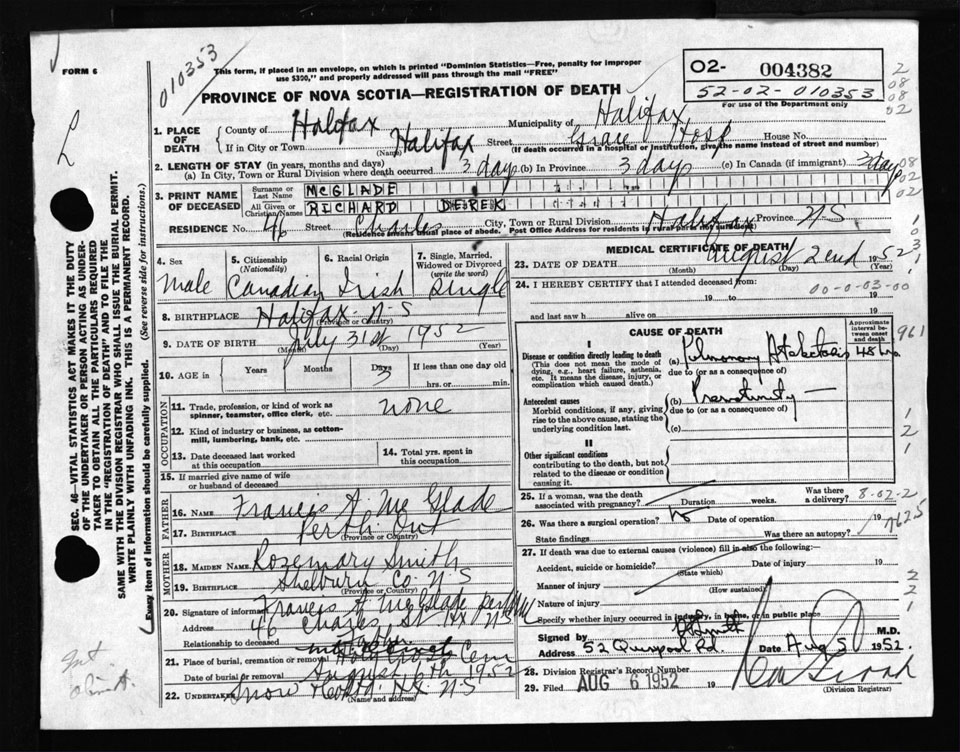 FORM 6
010353
This form, if placed in an envelope, on which is printed "Dominion Statistics—Free, penalty for improper
use $300," and properly addressed will pass through the mail "FREE"
O2- 004382
52-02-010353
For use of the Department only
PROVINCE OF NOVA SCOTIA—REGISTRATION OF DEATH
1. PLACE OF DEATH
County of Halifax Municipality of Halifax
If in City or Town Halifax Street Grace Hosp House No.
(Name) (If death occurred in a hospital or institution, give the name instead of street and number)
2. LENGTH OF STAY (in years, months and days)
(a) In City, Town or Rural Division where death occurred 3 days (b) In Province 3 days (c) In Canada (if immigrant) 3 days
3. PRINT NAME OF DECEASED
Surname or Last Name MCGLADE
All Given or Christian Names RICHARD DEREK
RESIDENCE No. 46 Street Charles City, Town or Rural Division Halifax Province NS
(Residence means usual place of abode. Post Office Address for residents in rural parts not sufficient)
4. Sex Male
5. Citizenship (Nationality) Canadian
6. Racial Origin Irish
7. Single, Married, Widowed or Divorced (write the word) Single
8. BIRTHPLACE Halifax N-S
(Province or Country)
9. DATE OF BIRTH July 31st 1952
(Month) (Day) (Year)
10. AGE in Years Months Days 3 If less than one day old
hrs. or min.
OCCUPATION
11. Trade, profession, or kind of work as
spinner, teamster, office clerk, etc. none
12. Kind of industry or business, as cotton-
mill, lumbering, bank, etc.
13. Date deceased last worked
at this occupation
14. Total yrs. spent in
this occupation
15. If married give name of wife
or husband of deceased
FATHER
16. Name Francis A. McGlade
17. Birthplace Perth Ont
(Province or Country)
MOTHER
18. MAIDEN NAME Rozemary Smith
19. BIRTHPLACE Shelburn Co N S
(Province or Country)
20. Signature of informant Francis A McGlade per
Address 46 Charles St Hx N S
Relationship to deceased Father
21. Place of burial, cremation or removal Holy Cross Cem
Date of burial or removal August 6th 1952
22. UNDERTAKER Snow & Co Ltd. Hx NS
(Name and Address)
MEDICAL CERTIFICATE OF DEATH
23. DATE OF DEATH August 2end 1952
(Month) (Day) (Year)
24. I HEREBY CERTIFY that I attended deceased from: 00-0-03-00
19 to 19
and last saw h alive on 19
CAUSE OF DEATH
Approximate interval between onset and death
I
Disease or condition directly leading to death
(This does not mean the mode of
dying, e.g., heart failure, asthenia,
etc. It means the disease, injury, or
complication which caused death.)
(a) Pulmonary Atelectasis 48 hrs.
due to (or as a consequence of)
Antecedent causes
Morbid conditions, if any, giving
rise to the above cause, stating the
underlying condition last.
(b) Prematurity —
due to (or as a consequence of)
(c)
II
Other significant conditions
contributing to the death, but not
related to the disease or condition
causing it.
25. If a woman, was the death
associated with pregnancy? Duration weeks. Was there a delivery? 8-02-2
26. Was there a surgical operation? No Date of operation 19
State findings Was there an autopsy?
7625
27. If death was due to external causes (violence) fill in also the following:
Accident, suicide or homicide? Date of injury 19
(State which)
Manner of injury
(How sustained)
Nature of injury
Specify whether injury occurred in industry, in home, or in public place
Signed by M.D.
Address 52 Quinpool Rd Date Aug 5 1952.
28. Division Registrar's Record Number
29. Filed AUG 6 1952 19
(Division Registrar)
961
SEC. 46—VITAL STATISTICS ACT MAKES IT THE DUTY
OF THE UNDERTAKER OR PERSON ACTING AS UNDER-
TAKER TO OBTAIN ALL THE PARTICULARS REQUIRED
IN THE "REGISTRATION OF DEATH" AND TO FILE THE
SAME WITH THE DIVISION REGISTRAR WHO SHALL ISSUE THE BURIAL PERMIT.
WRITE PLAINLY WITH UNFADING INK. THIS IS A PERMANENT RECORD.
Every item of information should be carefully supplied. (See reverse side for instructions.)